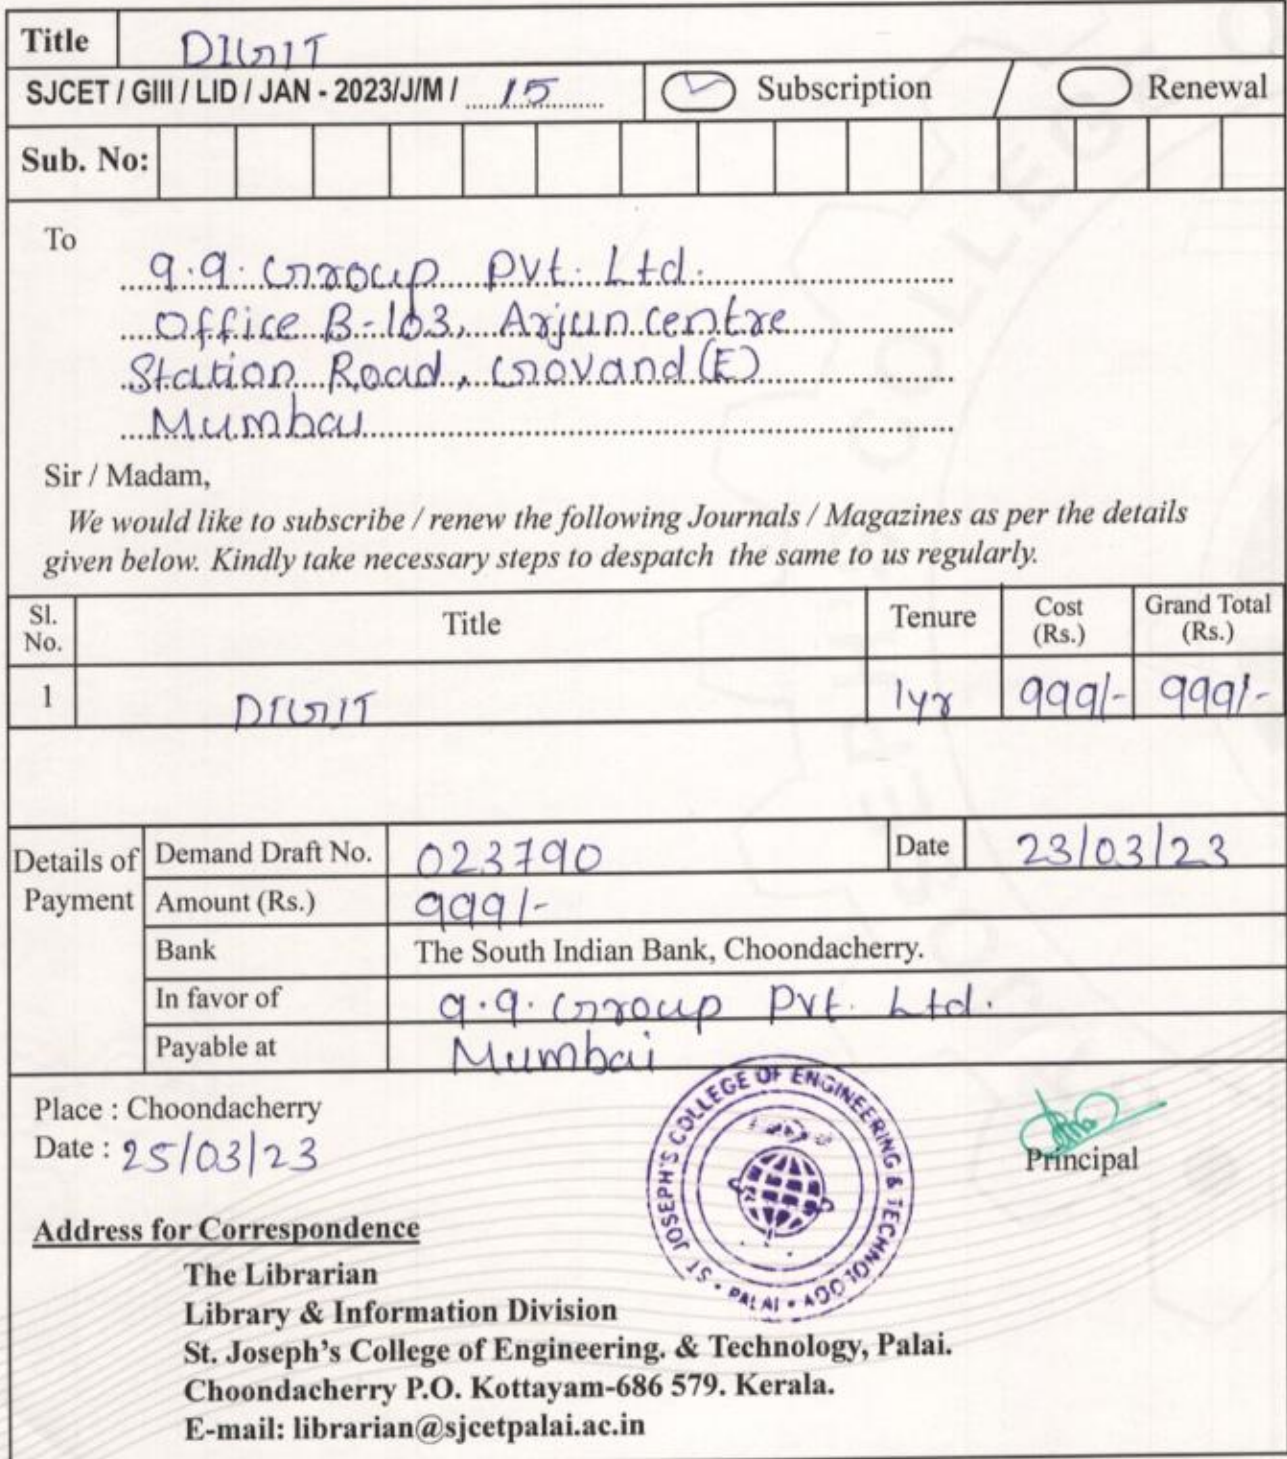 Title DIGIT
SJCET / GIII / LID / JAN - 2023/J/M / 15 Subscription / Renewal
Sub. No:
To
9.9. Group Pvt. Ltd.
Office B-103, Arjun Centre
Station Road, Govand (E)
Mumbai
Sir / Madam,
We would like to subscribe / renew the following Journals / Magazines as per the details
given below. Kindly take necessary steps to despatch the same to us regularly.
Sl. No. Title Tenure Cost (Rs.) Grand Total (Rs.)
1 DIGIT 1yr 999/- 999/-
Details of Payment
Demand Draft No. 023790 Date 23/03/23
Amount (Rs.) 999/-
Bank The South Indian Bank, Choondacherry.
In favor of 9.9. Group Pvt. Ltd.
Payable at Mumbai
Place : Choondacherry
Date : 25/03/23
ST. JOSEPH'S COLLEGE OF ENGINEERING & TECHNOLOGY
PALAI
Principal
Address for Correspondence
The Librarian
Library & Information Division
St. Joseph's College of Engineering. & Technology, Palai.
Choondacherry P.O. Kottayam-686 579. Kerala.
E-mail: librarian@sjcetpalai.ac.in